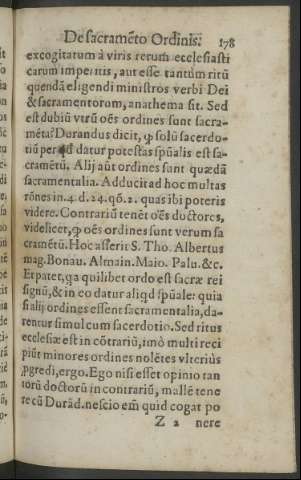 De sacramẽto Ordinis. 178
excogitatum à viris rerum ecclesiasti
carum imperitis, aut esse tantum ritũ
quendã eligendi ministros verbi Dei
& sacramentorum, anathema sit. Sed
est dubiũ vtrũ oẽs ordines sunt sacra-
mẽta? Durandus dicit, ꝙ solũ sacerdo-
tiũ per qd datur potestas spũalis est sa-
cramẽtũ. Alij aũt ordines sunt quædã
sacramentalia. Adducit ad hoc multas
rõnes in. 4. d. 24. qõ. 2. quas ibi poteris
videre. Contrariũ tenẽt oẽs doctores,
videlicet, ꝙ oẽs ordines sunt verum sa
cramẽtũ. Hoc asserit S. Tho. Albertus
mag. Bonau. Almain. Maio. Palu. &c.
Et patet, qa quilibet ordo est sacræ rei
signũ, & in eo datur aliqd spũale: quia
si alij ordines essent sacramentalia, da-
rentur simul cum sacerdotio. Sed ritus
ecclesiæ est in cõtrariũ, imò multi reci
piũt minores ordines nolẽtes vlterius
ꝓgredi, ergo. Ego nisi esset opinio tan
torũ doctorũ in contrariũ, mallẽ tene
re cũ Durãd. nescio em̃ quid cogat po
Z 2 nere